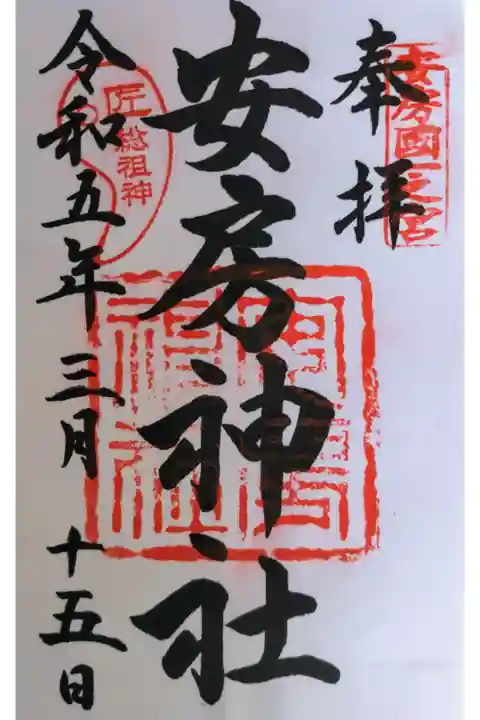 奉拝
安房國一之宮
安房神社
安房神社
匠総祖神
令和五年三月十五日